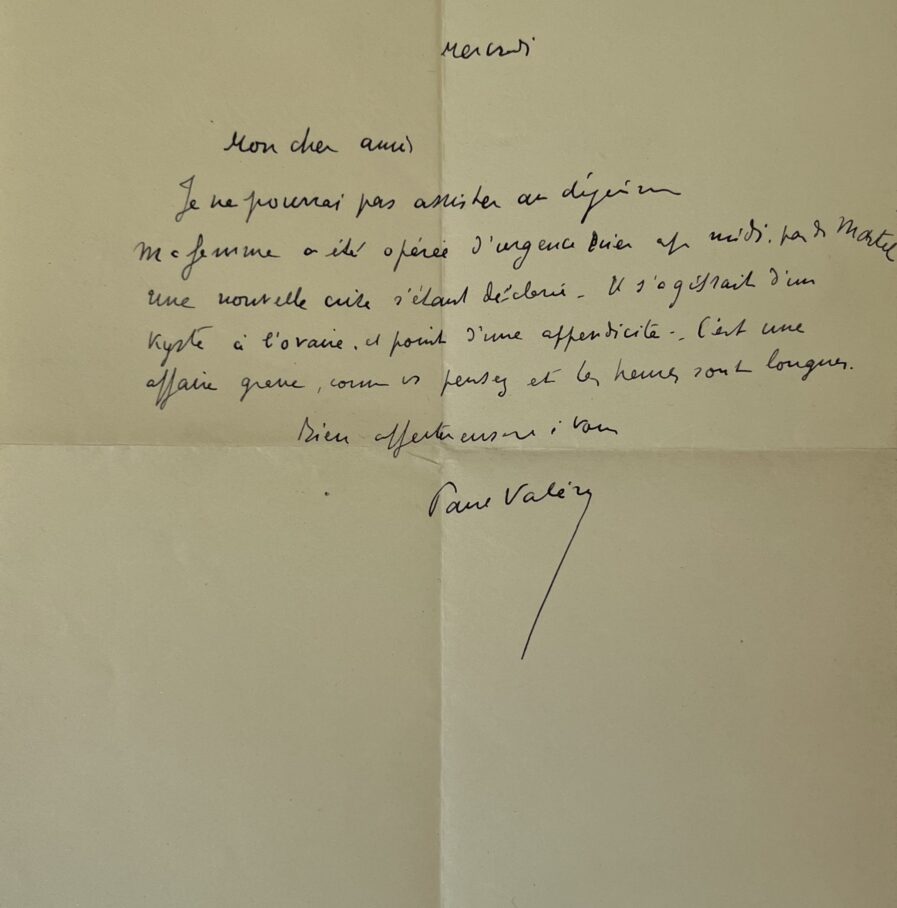 Mercredi
Mon cher ami,
Je ne pourrai pas assister au déjeuner
Ma femme a été opérée d'urgence hier ap midi. par de Martel
une nouvelle crise s'étant déclarée - Il s'agissait d'un
Kyste à l'ovaire. et point d'une appendicite -. C'est une
affaire grave, comme vs pensez et les heures sont longues.
Bien affectueusement à vous
Paul Valéry